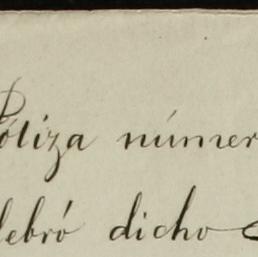 Póliza númer
lebró dicho